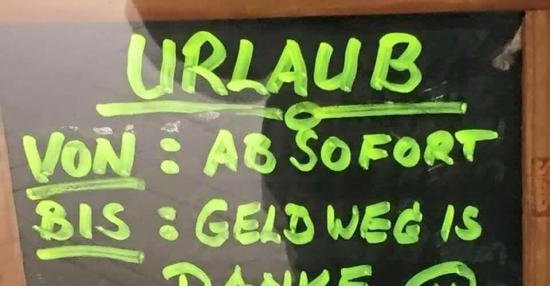 URLAUB
VON : AB SOFORT
BIS : GELD WEG IS
DANKE